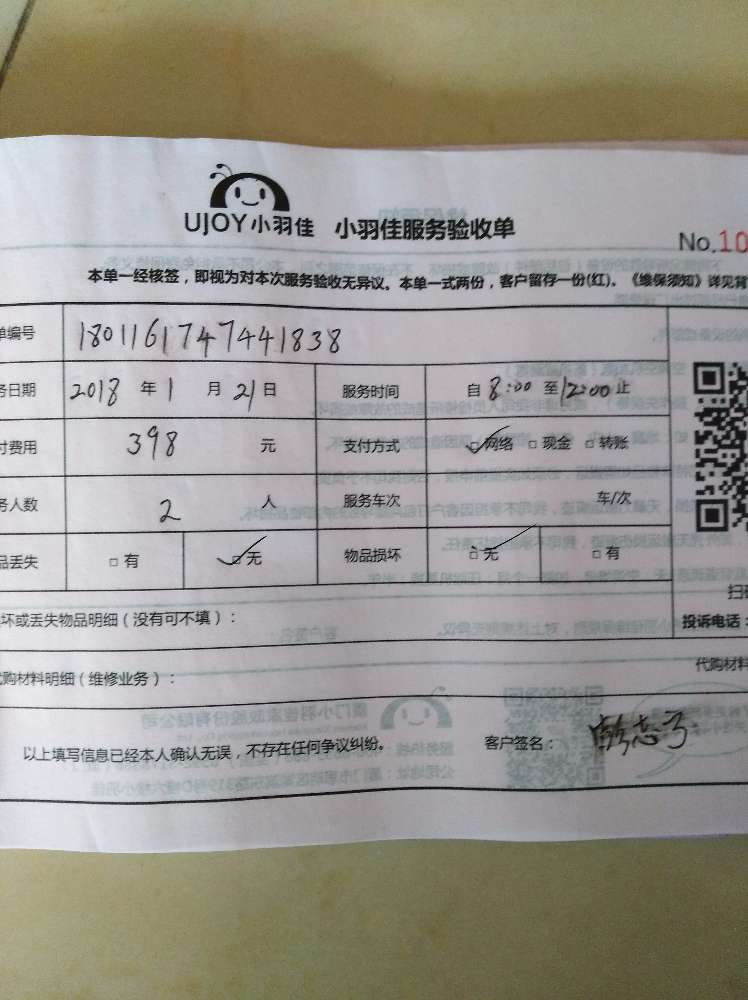 UJOY小羽佳 小羽佳服务验收单
No.10
本单一经核签，即视为对本次服务验收无异议。本单一式两份，客户留存一份(红)。《维保须知》详见背
单编号 1801161747441838
务日期 2018 年 1 月 21 日 服务时间 自 8:00 至 12:00 止
付费用 398 元 支付方式 网络 现金 转账
务人数 2 人 服务车次 车/次
品丢失 有 无 物品损坏 无 有
扫
坏或丢失物品明细（没有可不填）： 投诉电话：
代购材料
购材料明细（维修业务）：
以上填写信息已经本人确认无误，不存在任何争议纠纷。 客户签名：